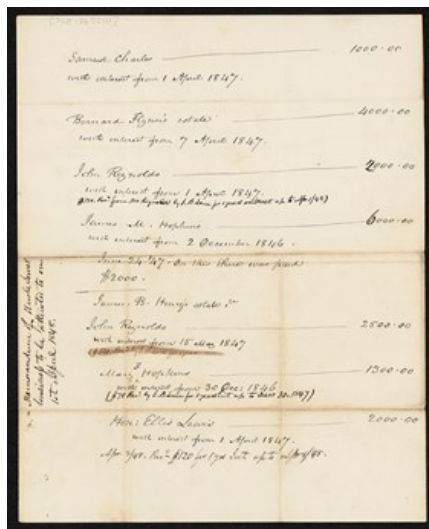 Samuel Charles 1000.00
with interest from 1 April 1847.
Bernard Flynn's estate 4000.00
with interest from 7 April 1847.
John Reynolds 2000.00
with interest from 1 April 1847.
James M. Hopkins 6000.00
with interest from 2 December 1846.
June 24. '47 - On this there was paid
$2000.
James B. Henry's estate
John Reynolds 2500.00
with interest from 15 May 1847
Mary S Hopkins 1300.00
with interest from 30 Dec: 1846
Hon: Ellis Lewis 2000.00
with interest from 1 April 1847.
Apr 7/48. $120 for 1 yd Int. up to Apr 1/48.
Memorandum of
business to be attended to on
1st April 1848.